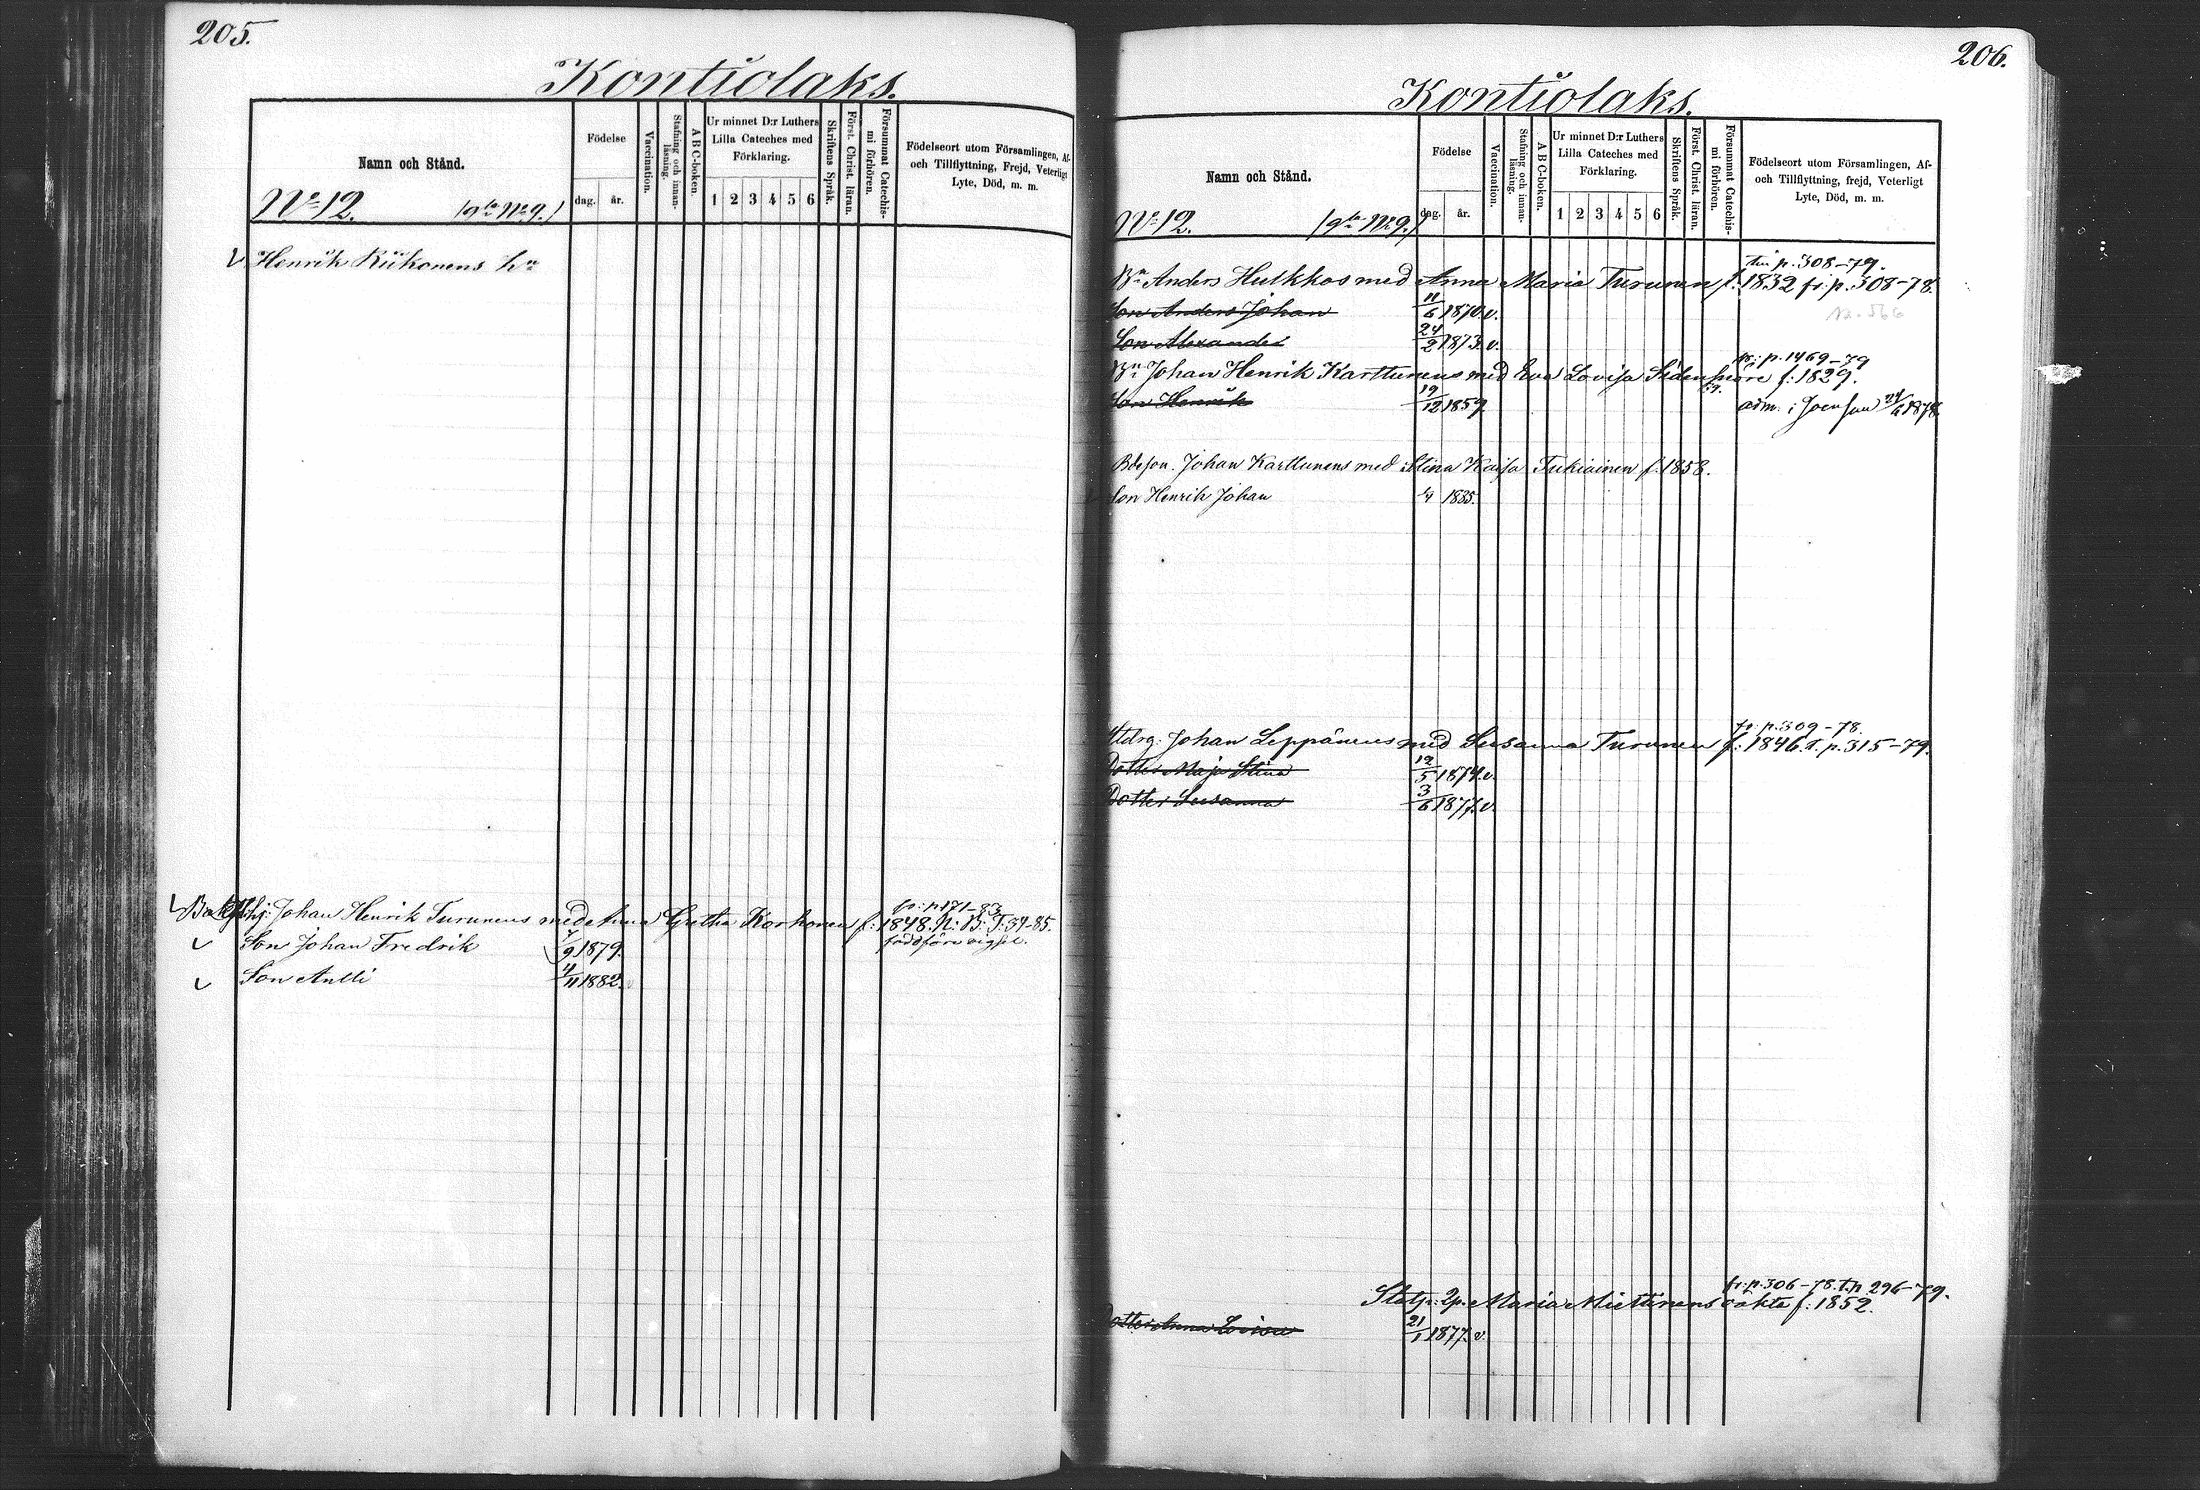 205.
Kontiolaks.
Namn och Stånd.
Födelse
dag. år.
Vaccination.
Stafning och innanläsning.
A B C-boken.
Ur minnet D:r Luthers
Lilla Cateches med
Förklaring.
1 2 3 4 5 6
Skriftens Språk.
Först. Christ. läran.
Försummat Catechismi förhören.
Födelseort utom Församlingen, Af-
och Tillflyttning, Frejd, Veterligt
Lyte, Död, m. m.
No 12. (gla No 9.)
Henrik Riikonens hu
fr: p. 171-83
Johan Henrik Turunens med Anna Gretha Korhonen f: 1848. N: B: T: 34-85.
Son Johan Fredrik 7/9 1879. född före vigsel.
Son Antti 4/11 1882.
206.
Kontiolaks.
Namn och Stånd.
Födelse
dag. år.
Vaccination.
Stafning och innanläsning.
A B C-boken.
Ur minnet D:r Luthers
Lilla Cateches med
Förklaring.
1 2 3 4 5 6
Skriftens Språk.
Först. Christ. läran.
Försummat Catechismi förhören.
Födelseort utom Församlingen, Af-
och Tillflyttning, frejd, Veterligt
Lyte, Död, m. m.
No 12. (gla No 9.)
p. 308-79.
Bn Anders Hulkkos med Anna Maria Turunen f. 1832 fr: p. 308-78.
Son Anders Johan 11/6 1870. v.
Son Alexander 24/2 1873. v.
p. 1469-79
Bn Johan Henrik Karttunens med Eva Lovisa Sidensnöre f: 1829.
Son Henrik 19/12 1859. adm. i Joensuu 24/6 1878.
Bdeson. Johan Karttunens med Stina Kaisa Tukiainen f. 1858.
Son Henrik Johan 1885.
fr: p. 309-78.
Johan Leppänens med Susanna Turunen f: 1846. t. p. 315-79.
Dotter Maja Stina 12/5 1874. v.
Dotter Susanna 3/6 1877. v.
fr: p. 306-78. t. p 296-79.
Maria Miettinens oäkta f: 1852.
Dotter Anna Lovisa 21/1 1877. v.